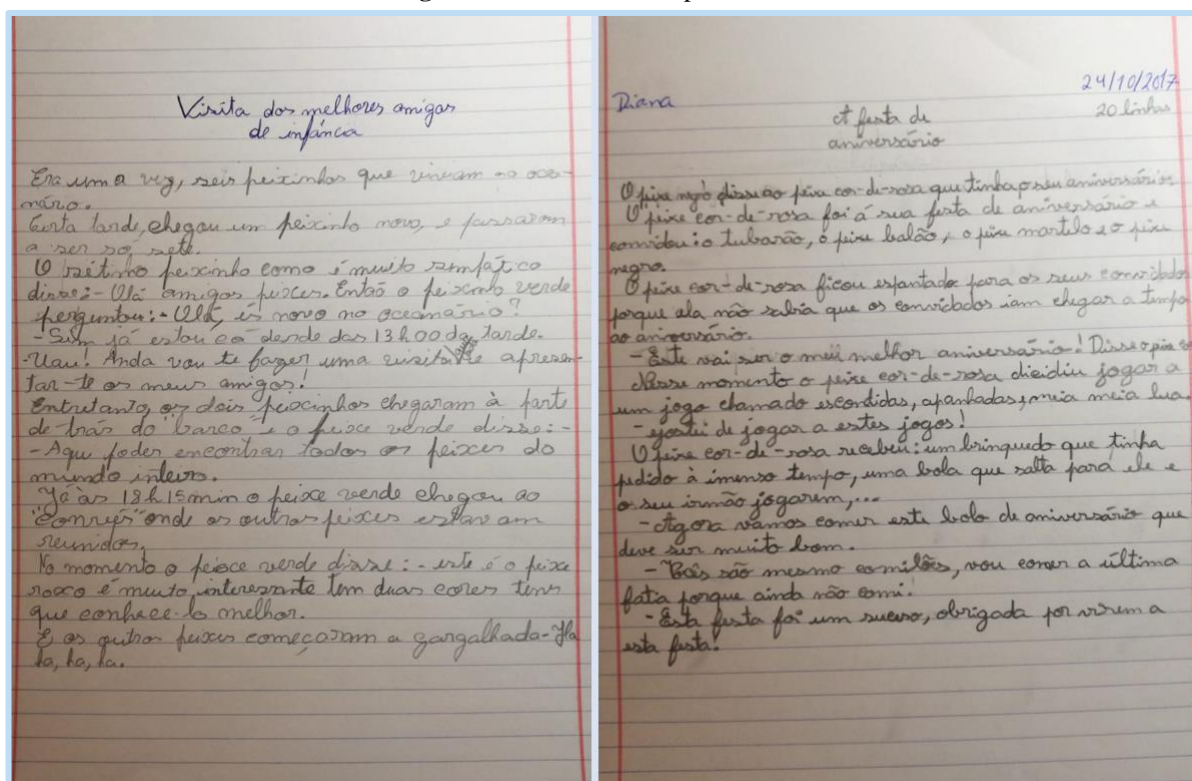 Visita dos melhores amigos
de infância
Era uma vez, seis peixinhos que viviam no ocea-
nário.
Certa tarde, chegou um peixinho novo, e passaram
a ser só sete.
O sétimo peixinho como é muito simpático
disse:- Olá amigos peixes. Então o peixinho verde
perguntou:- Olá, és novo no oceanário?
- Sim já estou cá desde das 13h00 da tarde.
-Uau! Anda vou te fazer uma visita e apresen-
tar-te os meus amigos!
Entretanto, os dois peixinhos chegaram à parte
de trás do barco e o peixe verde disse:-
-Aqui podes encontrar todos os peixes do
mundo inteiro.
Já às 18h15min o peixe verde chegou ao
"convés" onde os outros peixes estavam
reunidos.
No momento o peixe verde disse:- este é o peixe
roxo é muito interessante tem duas cores tens
que conhece-lo melhor.
E os outros peixes começaram a gargalhada-Ha
ha, ha, ha.
Diana
24/10/2017
20 linhas
A festa de
aniversário
O peixe disse ao peixe cor-de-rosa que tinha o seu aniversário.
O peixe cor-de-rosa foi á sua festa de aniversário e
convidou: o tubarão, o peixe balão, o peixe martelo e o peixe
negro.
O peixe cor-de-rosa ficou espantado para os seus convidados
porque ela não sabia que os convidados iam chegar a tempo
ao aniversário.
- Este vai ser o meu melhor aniversário! Disse o peixe
Nesse momento o peixe cor-de-rosa dicidiu jogar a
um jogo chamado escondidas, apanhadas, meia meia lua.
- gostei de jogar a estes jogos!
O peixe cor-de-rosa recebeu: um brinquedo que tinha
pedido à imenso tempo, uma bola que salta para ele e
o seu irmão jogarem,...
- Agora vamos comer este bolo de aniversário que
deve ser muito bom.
- Vocês são mesmo comilões, vou comer a última
fatia porque ainda não comi.
- Esta festa foi um sucesso, obrigada por virem a
esta festa!